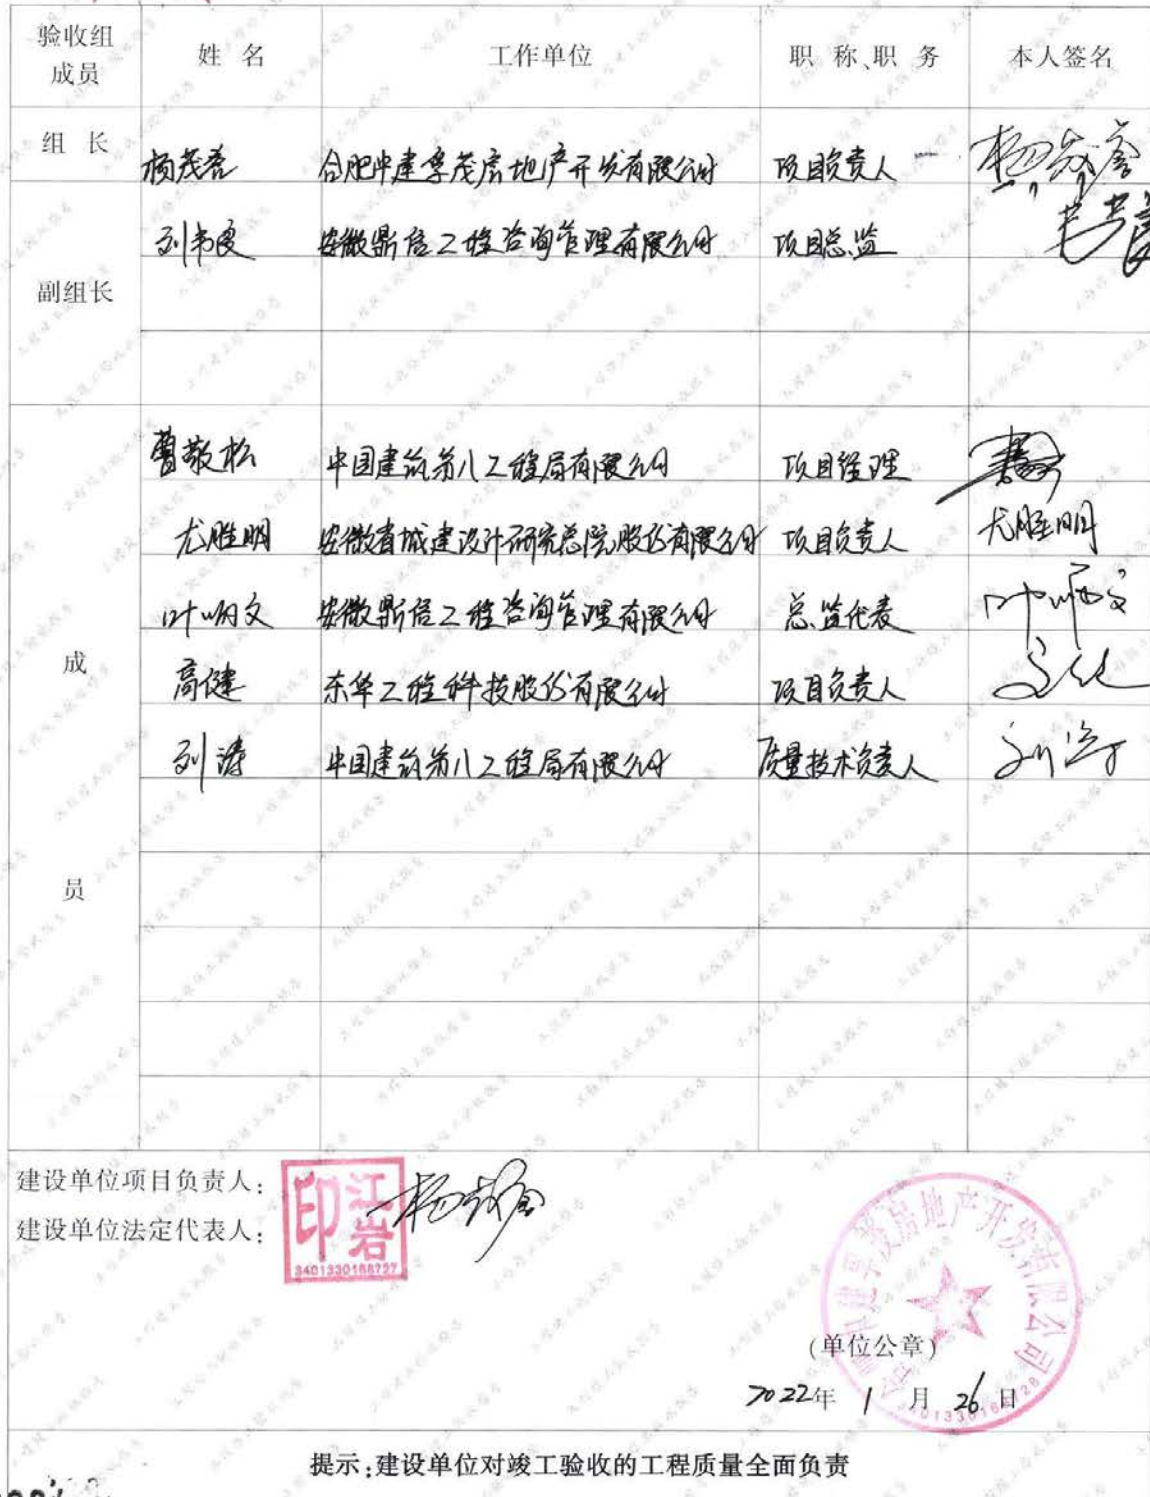 验收组成员 姓名 工作单位 职称、职务 本人签名
组长 杨茂 合肥中建孚茂房地产开发有限公司 项目负责人
刘韦良 安徽鼎信工程咨询管理有限公司 项目总监
副组长
曹敬松 中国建筑第八工程局有限公司 项目经理
尤胜明 安徽省城建设计研究总院股份有限公司 项目负责人 尤胜明
叶炳文 安徽鼎信工程咨询管理有限公司 总监代表
高健 东华工程科技股份有限公司 项目负责人
刘涛 中国建筑第八工程局有限公司 质量技术负责人 刘涛
成
员
建设单位项目负责人：
建设单位法定代表人：
江岩印
3401330168727
房地产开发有限公司
(单位公章)
2022年 1 月 26 日
提示:建设单位对竣工验收的工程质量全面负责